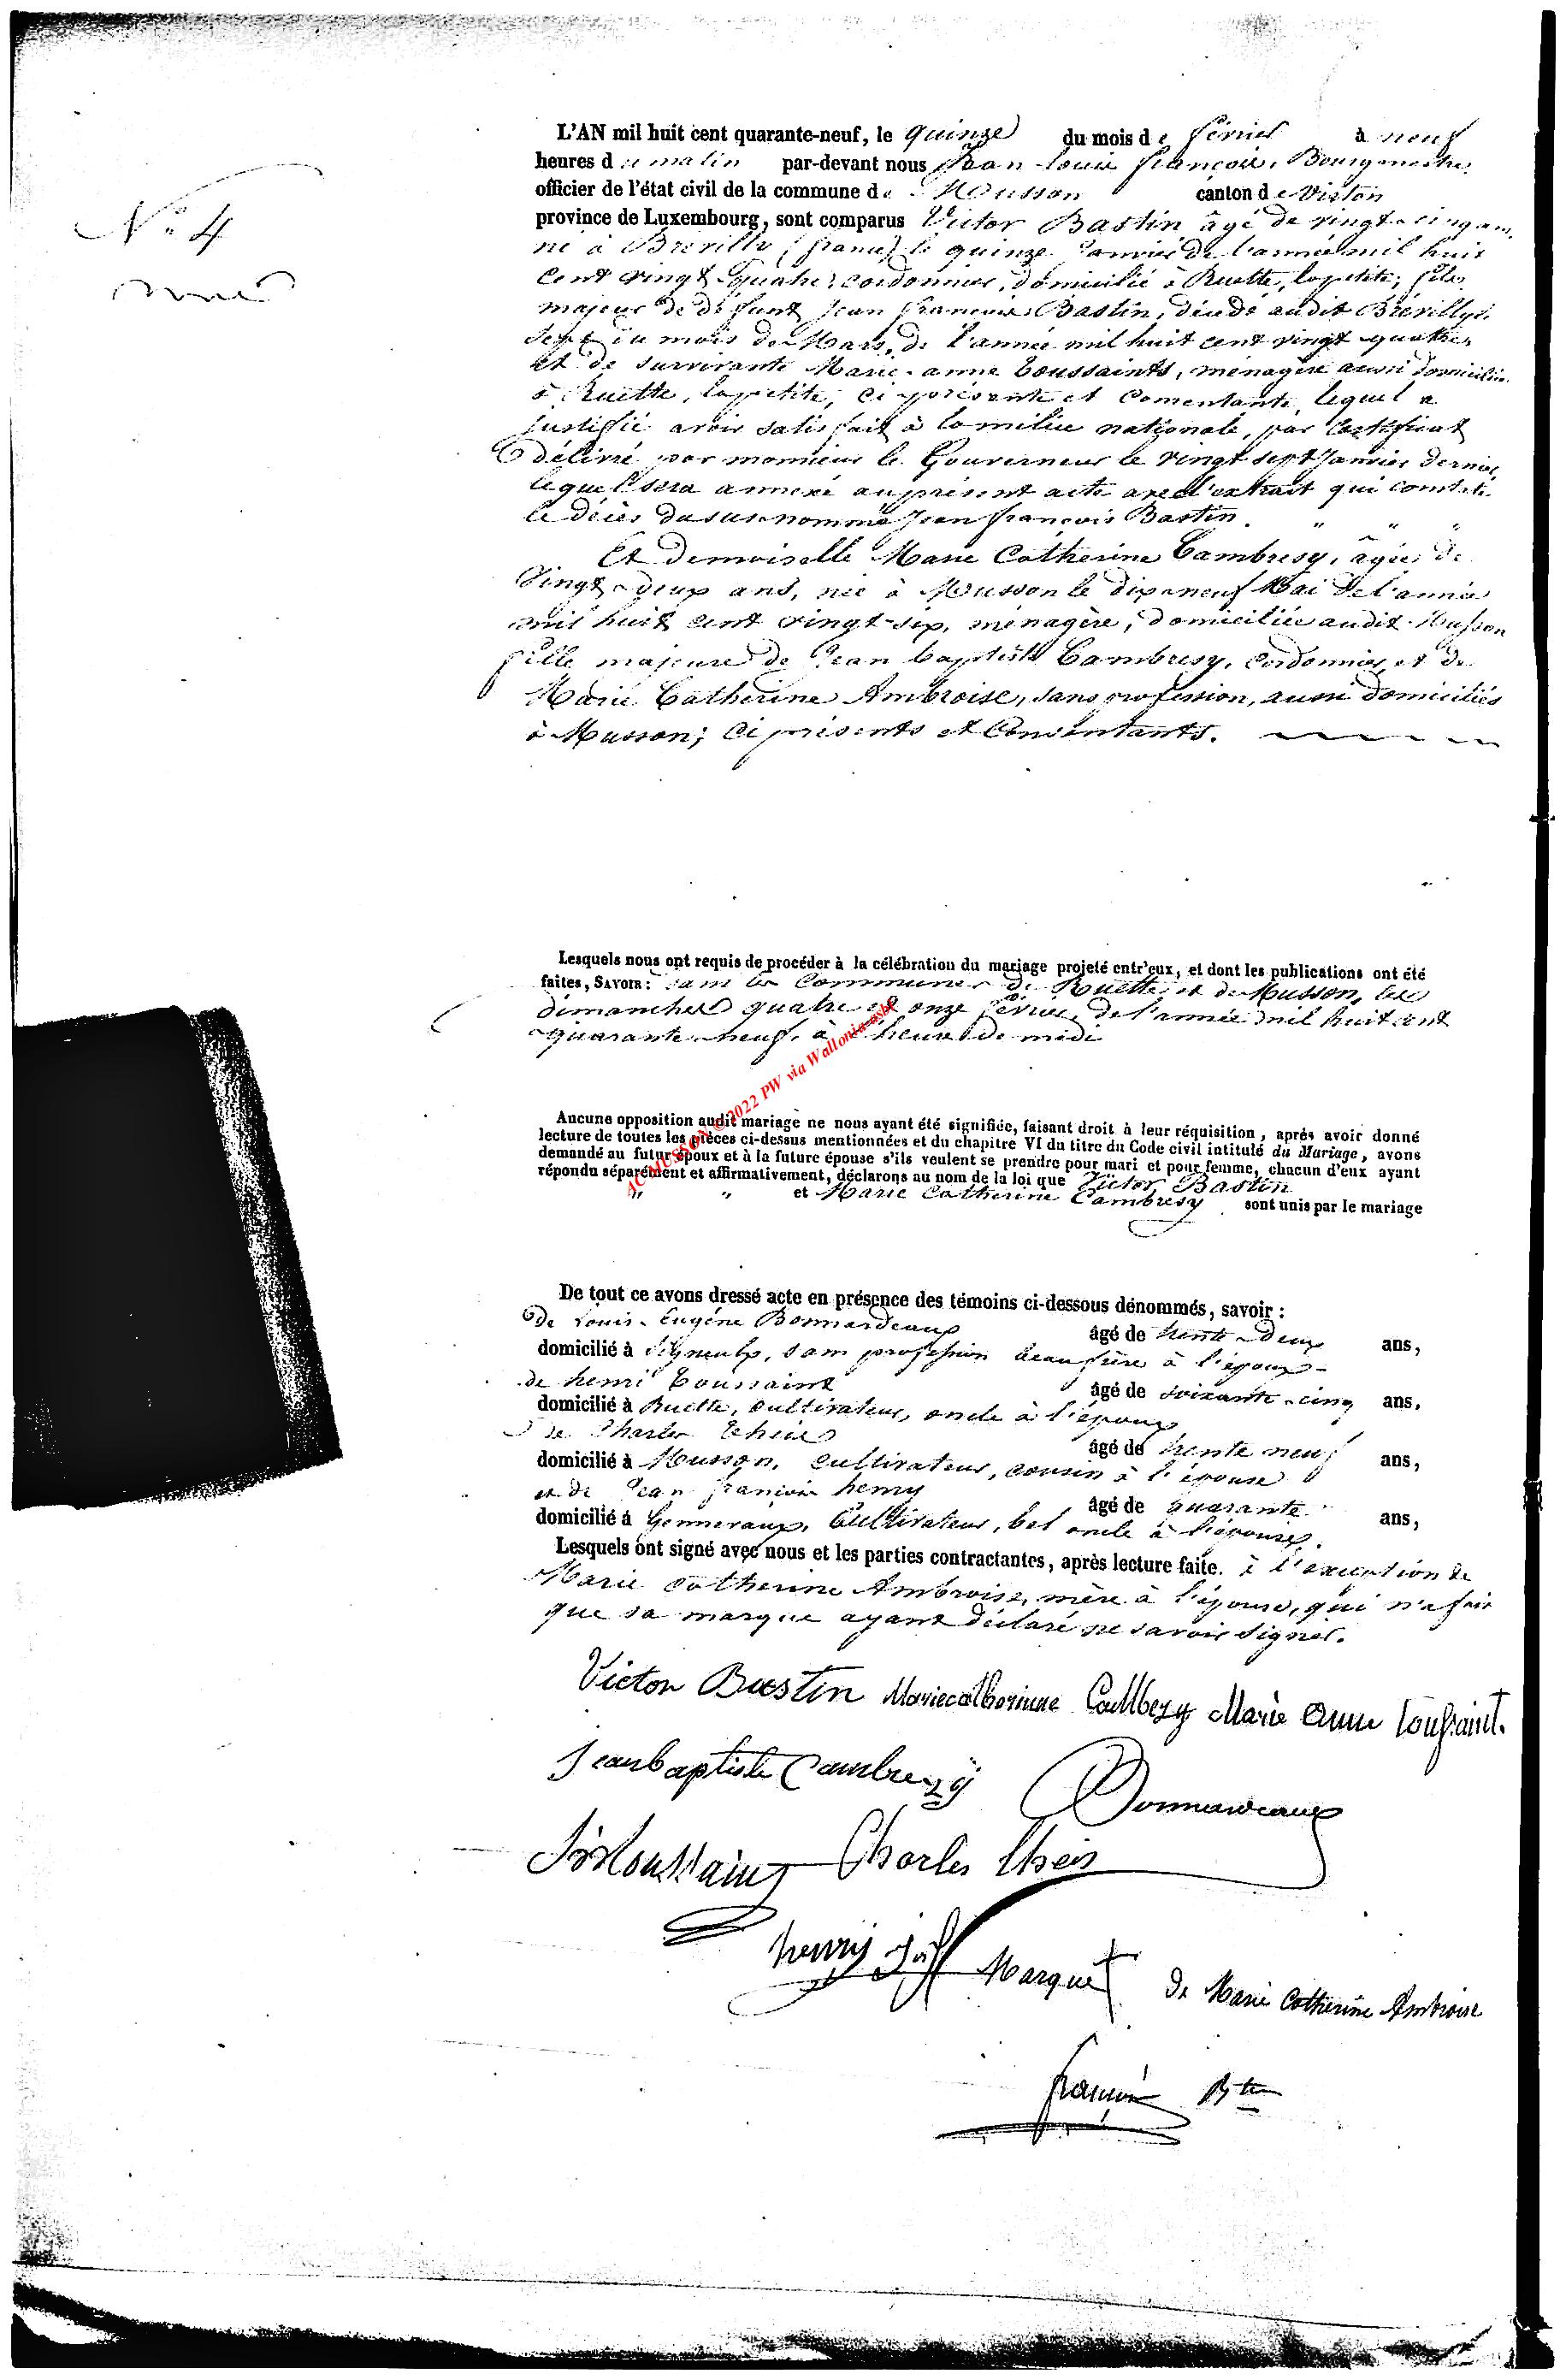 N° 4
L'AN mil huit cent quarante-neuf, le quinze du mois de février à neuf
heures du matin par-devant nous Jean Louis François, Bourgmestre,
officier de l'état civil de la commune de Musson canton de Virton
province de Luxembourg, sont comparus Victor Bastin âgé de vingt-cinq ans,
né à Brévilly (france) le quinze Janvier de l'année mil huit
cent vingt-quatre, cordonnier, domicilié à Ruette, la petite, fils
majeur de défunt Jean françois Bastin, décédé audit Brévilly le
sept du mois de Mars, de l'année mil huit cent vingt quatre,
et de survivante Marie-anne Toussaints, ménagère aussi domiciliée
à Ruette, la petite, ci présente et comentante, lequel a
justifié avoir satisfait à la milice nationale, par certificat
délivré par monsieur le Gouverneur le vingt sept Janvier dernier
lequel sera annexé au présent acte avec l'extrait qui constate
le décès du susnommé Jean françois Bastin. " " "
Et demoiselle Marie Catherine Cambresy, âgée de
Vingt-deux ans, née à Musson le dix-neuf Mai de l'année
mil huit cent vingt-six, ménagère, domiciliée audit Musson
fille majeure de Jean baptiste Cambresy, cordonnier et de
Marie Catherine Ambroise, sans profession, aussi domiciliés
à Musson; ci présents et Consentants.
Lesquels nous ont requis de procéder à la célébration du mariage projeté entr'eux, et dont les publications ont été
faites, SAVOIR: dans les Communes de Ruette et de Musson, les
dimanches quatre et onze février, de l'année mil huit cent
quarante-neuf, à heure de midi
Aucune opposition audit mariage ne nous ayant été signifiée, faisant droit à leur réquisition, après avoir donné
lecture de toutes les pièces ci-dessus mentionnées et du chapitre VI du titre du Code civil intitulé du Mariage, avons
demandé au futur époux et à la future épouse s'ils veulent se prendre pour mari et pour femme, chacun d'eux ayant
répondu séparément et affirmativement, déclarons au nom de la loi que Victor Bastin
" " et Marie Catherine Cambresy sont unis par le mariage
AC MUSSON © 2022 PW via Wallonia asbl
De tout ce avons dressé acte en présence des témoins ci-dessous dénommés, savoir :
de Louis-Eugène Bonnardeaux âgé de trente-deux ans,
domicilié à Signeulx, sans profession beaufrère à l'époux
de henri Toussaint âgé de soixante-cinq ans,
domicilié à Ruette, cultivateur, oncle à l'époux
de Charles Theis âgé de trente neuf ans,
domicilié à Musson, cultivateur, cousin à l'épouse
et de Jean françois henry âgé de quarante ans,
domicilié à Gennevaux, Cultivateur, bel oncle à l'épouse.
Lesquels ont signé avec nous et les parties contractantes, après lecture faite. à l'exception de
Marie Catherine Ambroise, mère à l'épouse, qui n'a fait
que sa marque ayant déclaré ne savoir signer.
Victor Bastin Mariecatherinne Cambezy Marie Anne Toussaint.
Jeanbaptiste Cambrezÿ Bonnardeaux
Toussaint Charles theis
henry Marque de Marie Catherine Ambroise
françois Btre